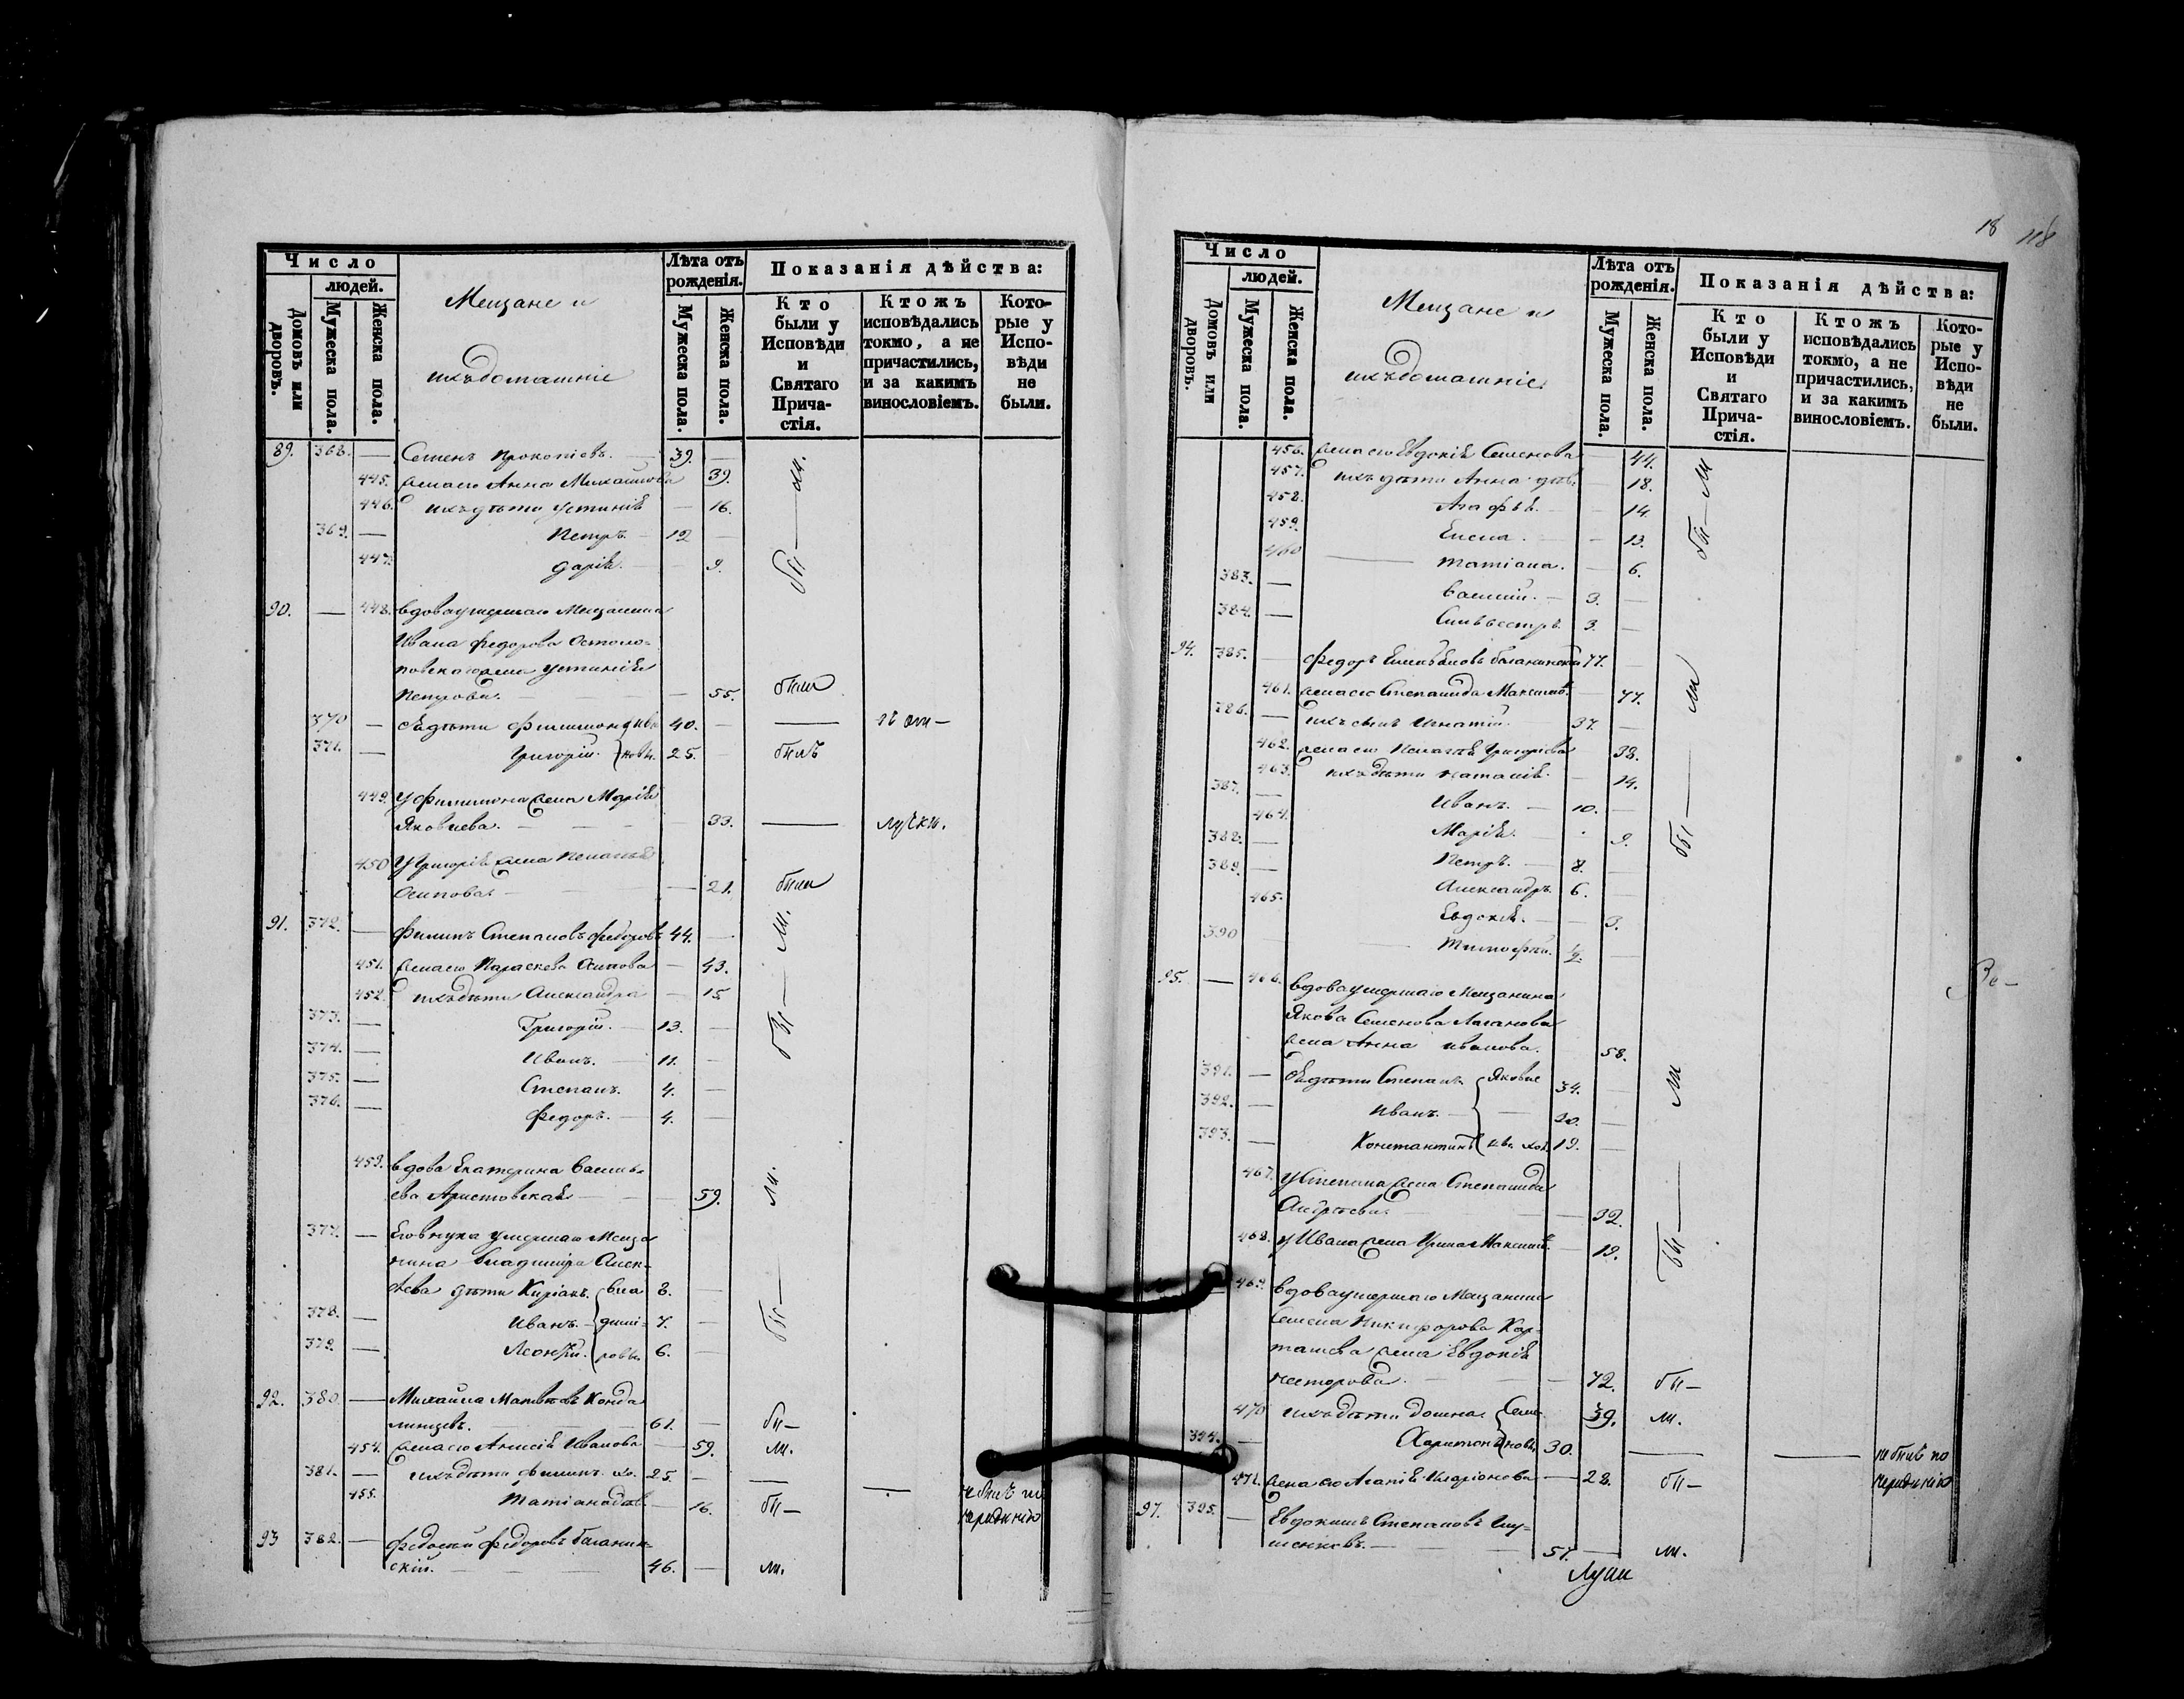 Число
людей.
Домовъ или дворовъ.
Мужеска пола.
Женска пола.
Мещане и
ихъ домашніе
Лѣта отъ рожденія.
Мужеска пола.
Женска пола.
Показанія дѣйства:
Кто были у Исповѣди и Святаго Прича-стія.
Ктожъ исповѣдались токмо, а не причастились, и за какимъ винословіемъ.
Кото-рые у Испо-вѣди не были.
89. 368. — Семенъ Прокопіевъ. — 39. —
445. жена его Анна Михайлова 39.
446. ихъ дѣти Устинія — 16.
369. — Петръ. — 12 —
447. Дарія. — 9.
бы — ли.
90. — 448. вдова умершаго Мещанина
Ивана Федорова
жена Устинія
Петрова. — 55. была
370 — Ея дѣти Филимонъ Ива 40. —
371. — Григорій. новы. 25. — былъ
449. У Филимона жена Марія
Яковлева. — 33. —
450 У Григорія жена Пелагія
Осипова. — 21. была
91. 372. — Филипъ Степановъ Федоровъ 44. —
451. жена его Параскева Осипова — 43.
452. ихъ дѣти Александра — 15
373. — Григорій. — 13. —
374. — Иванъ. — 11. —
375. — Степанъ. 4. —
376. — Федоръ. — 4. —
бы — ли.
453. вдова Екатерина Василь-
ева — 59.
377. — Ея внука умершаго Меща
нина Владиміра Алек-
дѣти Киріакъ. Вла 8. —
378. — Иванъ. — дими- 7. —
379. — Леонтій. ровы. 6. —
бы — ли.
92. 380. — Михайла Матвѣевъ Конда
61. — бы —
454. жена его Анисія Иванова — 59. ли.
381. — ихъ дѣти Филипъ хол. 25. — — — не былъ по
455. Татіана дѣв. — 16. бы — нерадѣнію
93 382. — Федосей Федоровъ Баганин-
скій. — 46. — ли.
18 118
Число
людей.
Домовъ или дворовъ.
Мужеска пола.
Женска пола.
Мещане и
ихъ домашніе.
Лѣта отъ рожденія.
Мужеска пола.
Женска пола.
Показанія дѣйства:
Кто были у Исповѣди и Святаго Прича-стія.
Ктожъ исповѣдались токмо, а не причастились, и за какимъ винословіемъ.
Кото-рые у Испо-вѣди не были.
456. жена его Евдокія Семенова — 44.
457. ихъ дѣти Анна дѣв. — 18.
458. Агафья. — 14.
459. Елена. — 13.
460 — Татіана. — 6.
383. — Василій. — 3. —
384. — Сильвестръ. 3. —
бы — ли
94. 385. — Федоръ Баганинскій 77. —
461. жена его Степанида Максимов. — 77.
386. — ихъ сынъ Игнатій. 37. —
462. жена его Пелагія Григорьева 38.
463. ихъ дѣти Наталія. — 14.
387. — Иванъ. — 10. —
464. Марія. — 9.
388. — Петръ. — 8. —
389. — Александръ. 6. —
465. Евдокія. — 3.
390 — Тимофей. ½. —
бы — ли
95. — 466. вдова умершаго Мещанина
Якова Семенова
жена Анна Иванова. 58.
391. — Ея дѣти Степанъ. Яковле 34. —
392. — Иванъ. — 20. —
393. — Константинъ вы. хол. 19. —
467. У Степана жена Степанида
Андреева. — 32.
468. У Ивана жена Ирина Максим. — 19.
бы — ли
469. вдова умершаго Мещанина
Семена Никифорова Кар-
ташева жена Евдокія
Несторова. — 72. бы —
470 ихъ дѣти Домна. Семе 39. ли.
394. — Харитонъ новы. 30. — — не былъ по
471. жена его Агапія Иларіонова — 28. бы — нерадѣнію
97. 395. — Евдокимъ Степановъ Глу-
шенковъ. — 57. — ли.